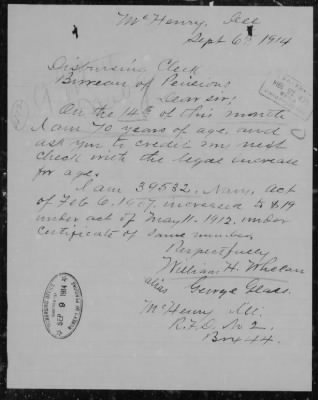 McHenry, Ill
Sept 6th 1914
Disbursing Clerk
Bureau of Pensions
Dear sir;
On the 14th of this month
I am 70 years of age, and
ask you to credit on next
check with the legal increase
for age.
I am 39532, Navy, act
of Feb 6, 1907, increased to $19
under act of May 11-1912. under
certificate of same number.
Respectfully
William H. Whelan
alias George Glass.
McHenry Ill.
R.F.D. No 2.
Box 44.
DISBURSING OFFICE
SEP 9 1914